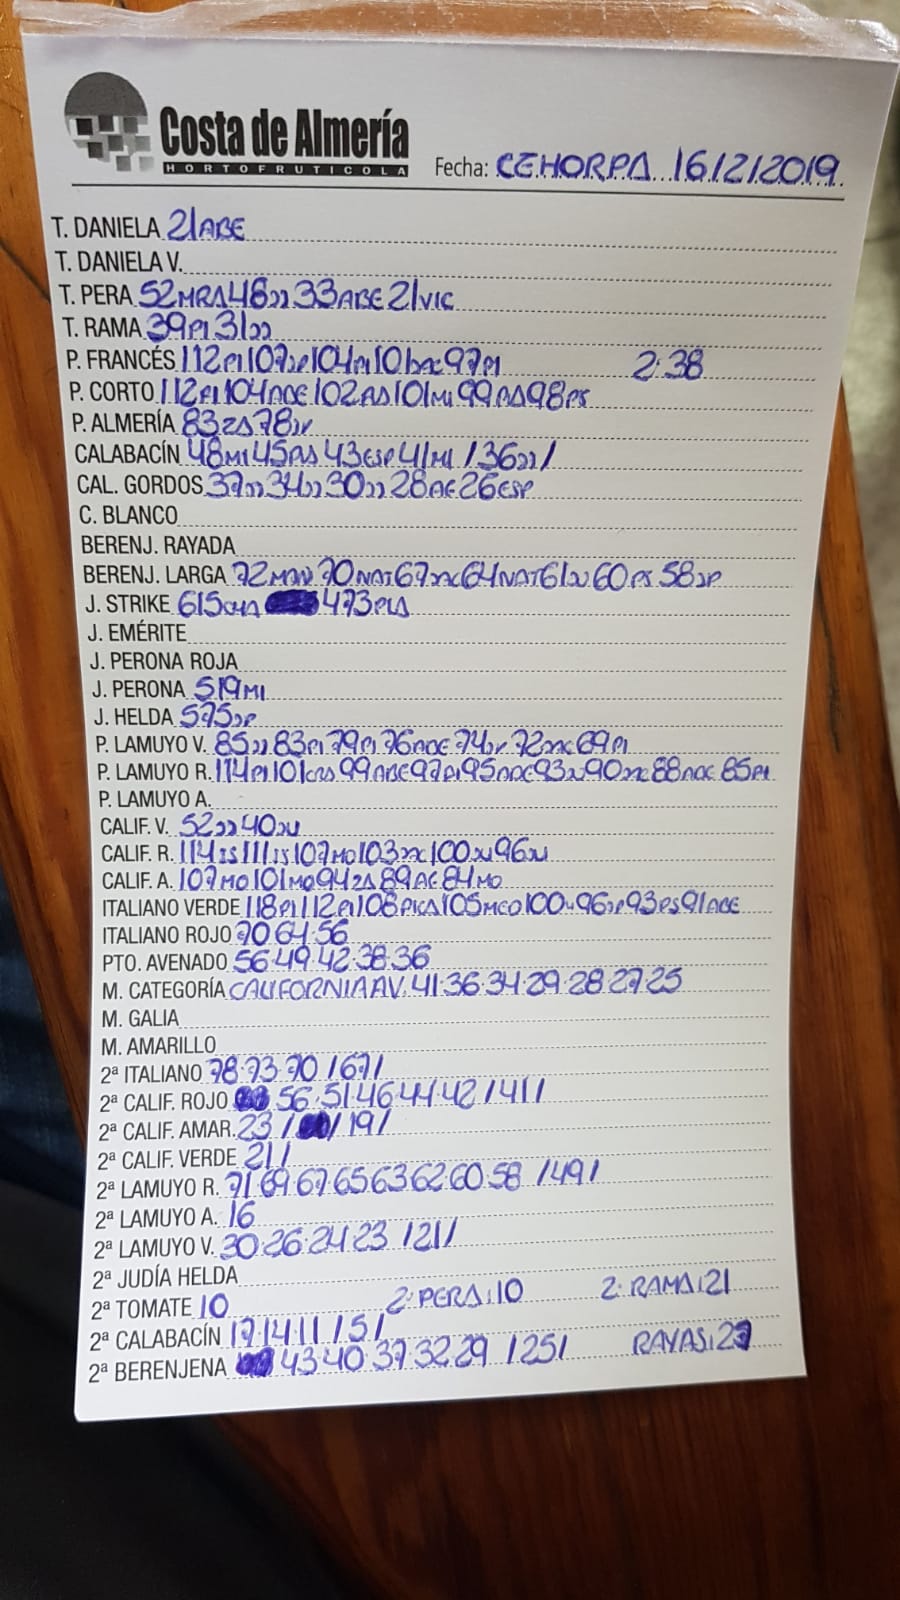 Costa de Almería
HORTOFRUTICOLA
Fecha: CEHORPA 16/2/2019
T. DANIELA 21ABE
T. DANIELA V.
T. PERA 52MRA 48 33ABE 21VIC
T. RAMA 39PI 31
P. FRANCÉS 112PI 107 104PI 101 97PI 2ª 38
P. CORTO 112PI 104ADE 102AS 101MI 99 98PS
P. ALMERÍA 83ZA 78
CALABACÍN 48MI 45 43ESP 41MI /36 /
CAL. GORDOS 37 34 30 28AE 26ESP
C. BLANCO
BERENJ. RAYADA
BERENJ. LARGA 72 70NAT 67 64NAT 61 60PS 58
J. STRIKE 615CHA 473PLA
J. EMÉRITE
J. PERONA ROJA
J. PERONA 519MI
J. HELDA 575
P. LAMUYO V. 85 83PI 79PI 76ADE 74 72 69PI
P. LAMUYO R. 114PI 101 99ABE 97PI 95ADE 93 90 88ADE 85PI
P. LAMUYO A.
CALIF. V. 52 40
CALIF. R. 114IS 111IS 107MO 103 100 96
CALIF. A. 107MO 101MO 94ZA 89AE 84MO
ITALIANO VERDE 118PI 112PI 108PICA 105MCO 100 96 93PS 91ABE
ITALIANO ROJO 70 64 56
PTO. AVENADO 56·49·42·38·36
M. CATEGORÍA CALIFORNIA AV. 41·36·34·29·28·27·25
M. GALIA
M. AMARILLO
2ª ITALIANO 78·73·70 /67/
2ª CALIF. ROJO 56·51·46·44·42 /41/
2ª CALIF. AMAR. 23 / /19/
2ª CALIF. VERDE 21/
2ª LAMUYO R. 71 69 67 65 63 62 60 58 /49/
2ª LAMUYO A. 16
2ª LAMUYO V. 30·26·24·23 /21/
2ª JUDÍA HELDA
2ª TOMATE 10 2ª PERA: 10 2ª RAMA: 21
2ª CALABACÍN 17 14 11 /5/
2ª BERENJENA 43·40·37·32·29 /25/ RAYAS: 27